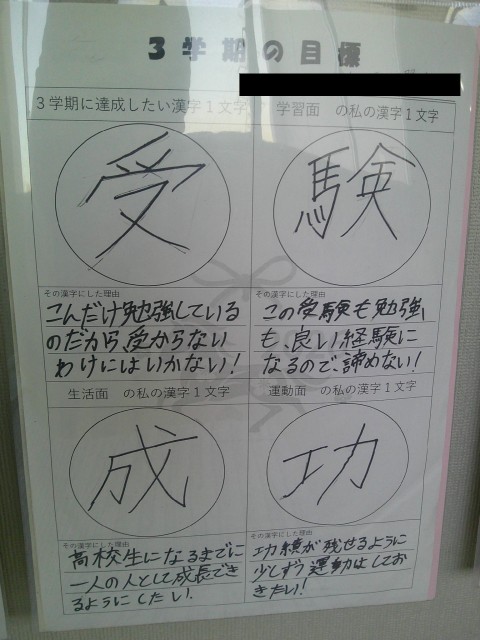 3学期の目標
3学期に達成したい漢字1文字
学習面 の私の漢字1文字
受
験
その漢字にした理由
こんだけ勉強している
のだから、受からない
わけにはいかない!
その漢字にした理由
この受験も勉強
も、良い経験に
なるので、諦めない!
生活面 の私の漢字1文字
運動面 の私の漢字1文字
成
功
その漢字にした理由
高校生になるまでに
一人の人として成長でき
るようにしたい.
その漢字にした理由
功績が残せるように
少しずつ運動はしてお
きたい!